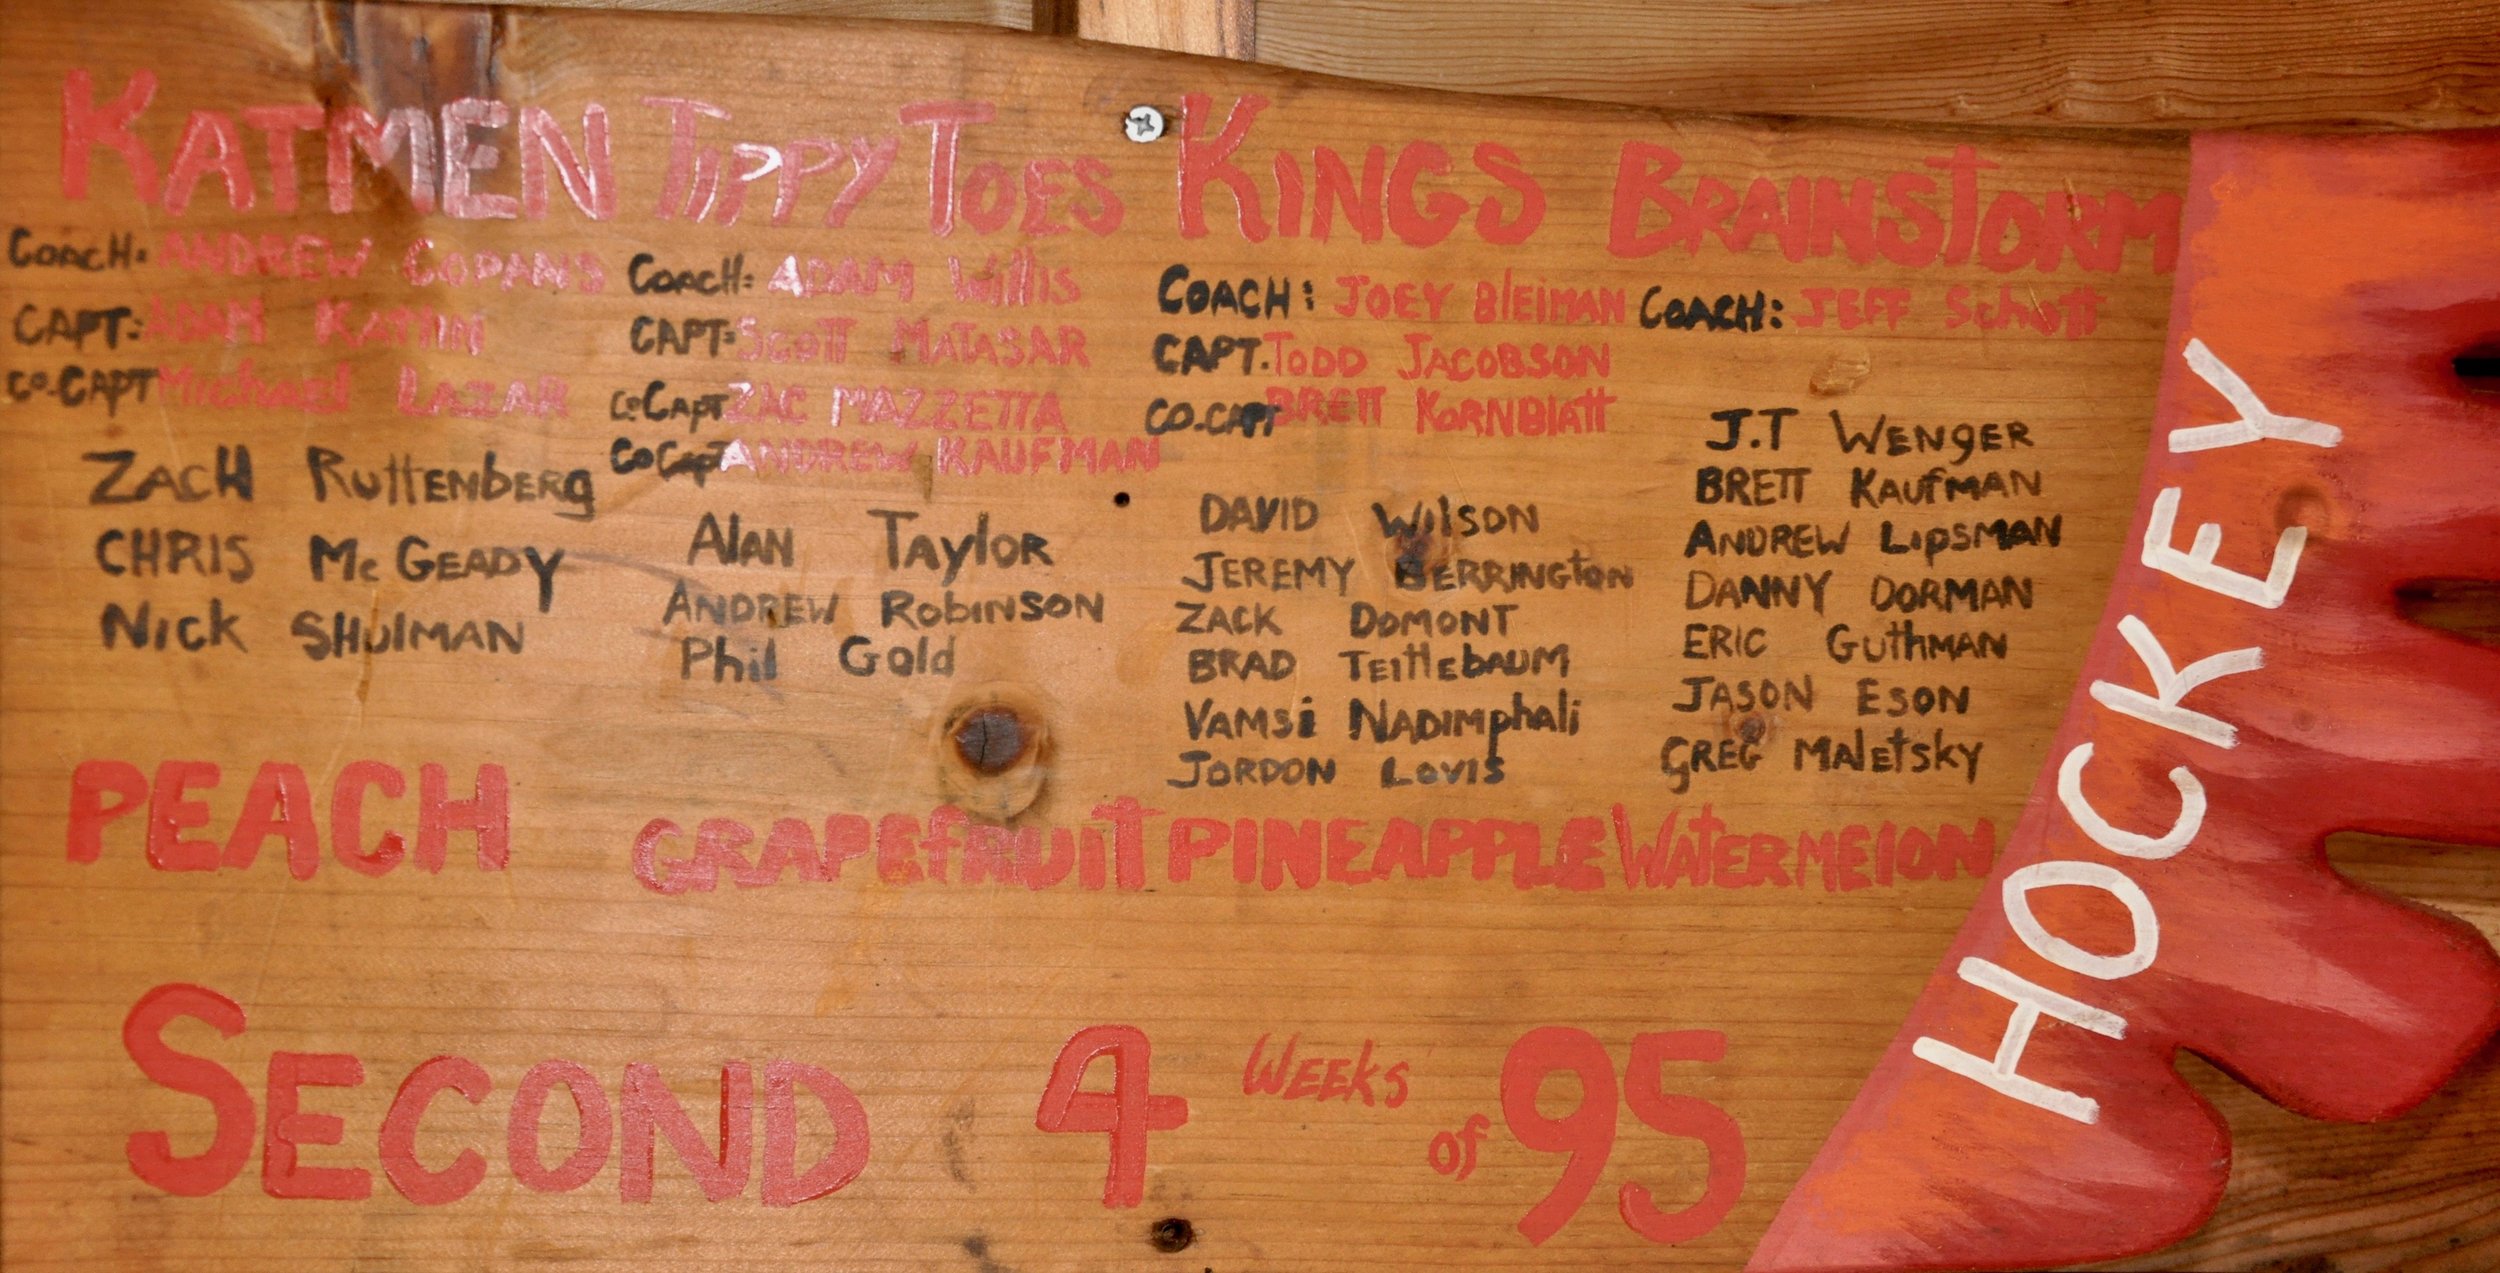 KATMEN
COACH: ANDREW COPANS
CAPT: ADAM KATTIN
CO-CAPT Michael LAZAR
ZACH RUttENbERg
CHRIS Mc GEADY
Nick SHulMAN
PEACH
TIPPY TOES
COACH: ADAM Willis
CAPT: Scott MATASAR
Co Capt ZAC MAZZETTA
Co Capt ANDREW KAUFMAN
Alan Taylor
ANDREW RobiNSON
Phil Gold
GRAPEfRUIT
KINGS
COACH: JOEY BleiMAN
CAPT. TODD JACOBSON
CO-CAPT BRETT KORNBlAtt
DAVID WilSON
JEREMY BERRINGtON
ZACK DOMONT
BRAD TEittlEbAUM
VAMSi NADIMphali
JORDON LOVIS
PINEAPPLE
BRAINSTORM
COACH: JEFF Schott
J.T WENgER
BRETT KAUfMAN
ANDREW LipSMAN
DANNY DORMAN
ERIC GUthMAN
JASON ESON
GREG MAletsky
WAtERMElON
SECOND 4 WEEKS of 95
HOCKEY